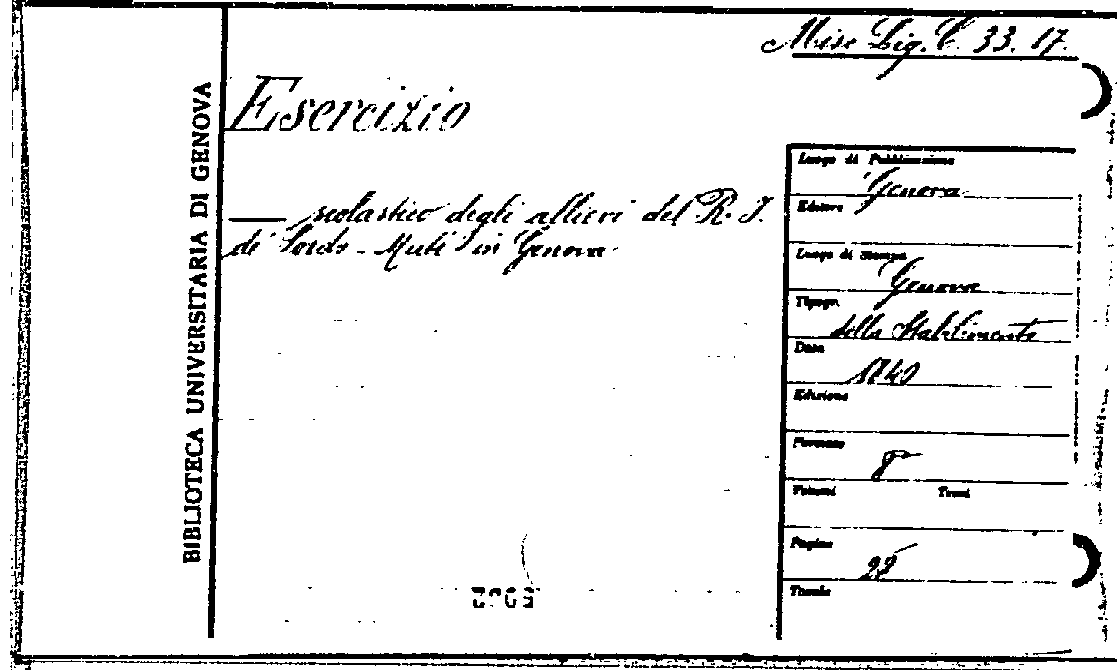 Misc Lig. C. 33. 17.
BIBLIOTECA UNIVERSITARIA DI GENOVA
Esercizio
— scolastico degli allievi del R. I.
di Sordo-Muti in Genova
Luogo di Pubblicazione
Genova
Editore
Luogo di Stampa
Genova
Tipogr.
dello Stabilimento
Data
Edizione
Formato
8°
Volumi Tomi
Pagine
Tavole